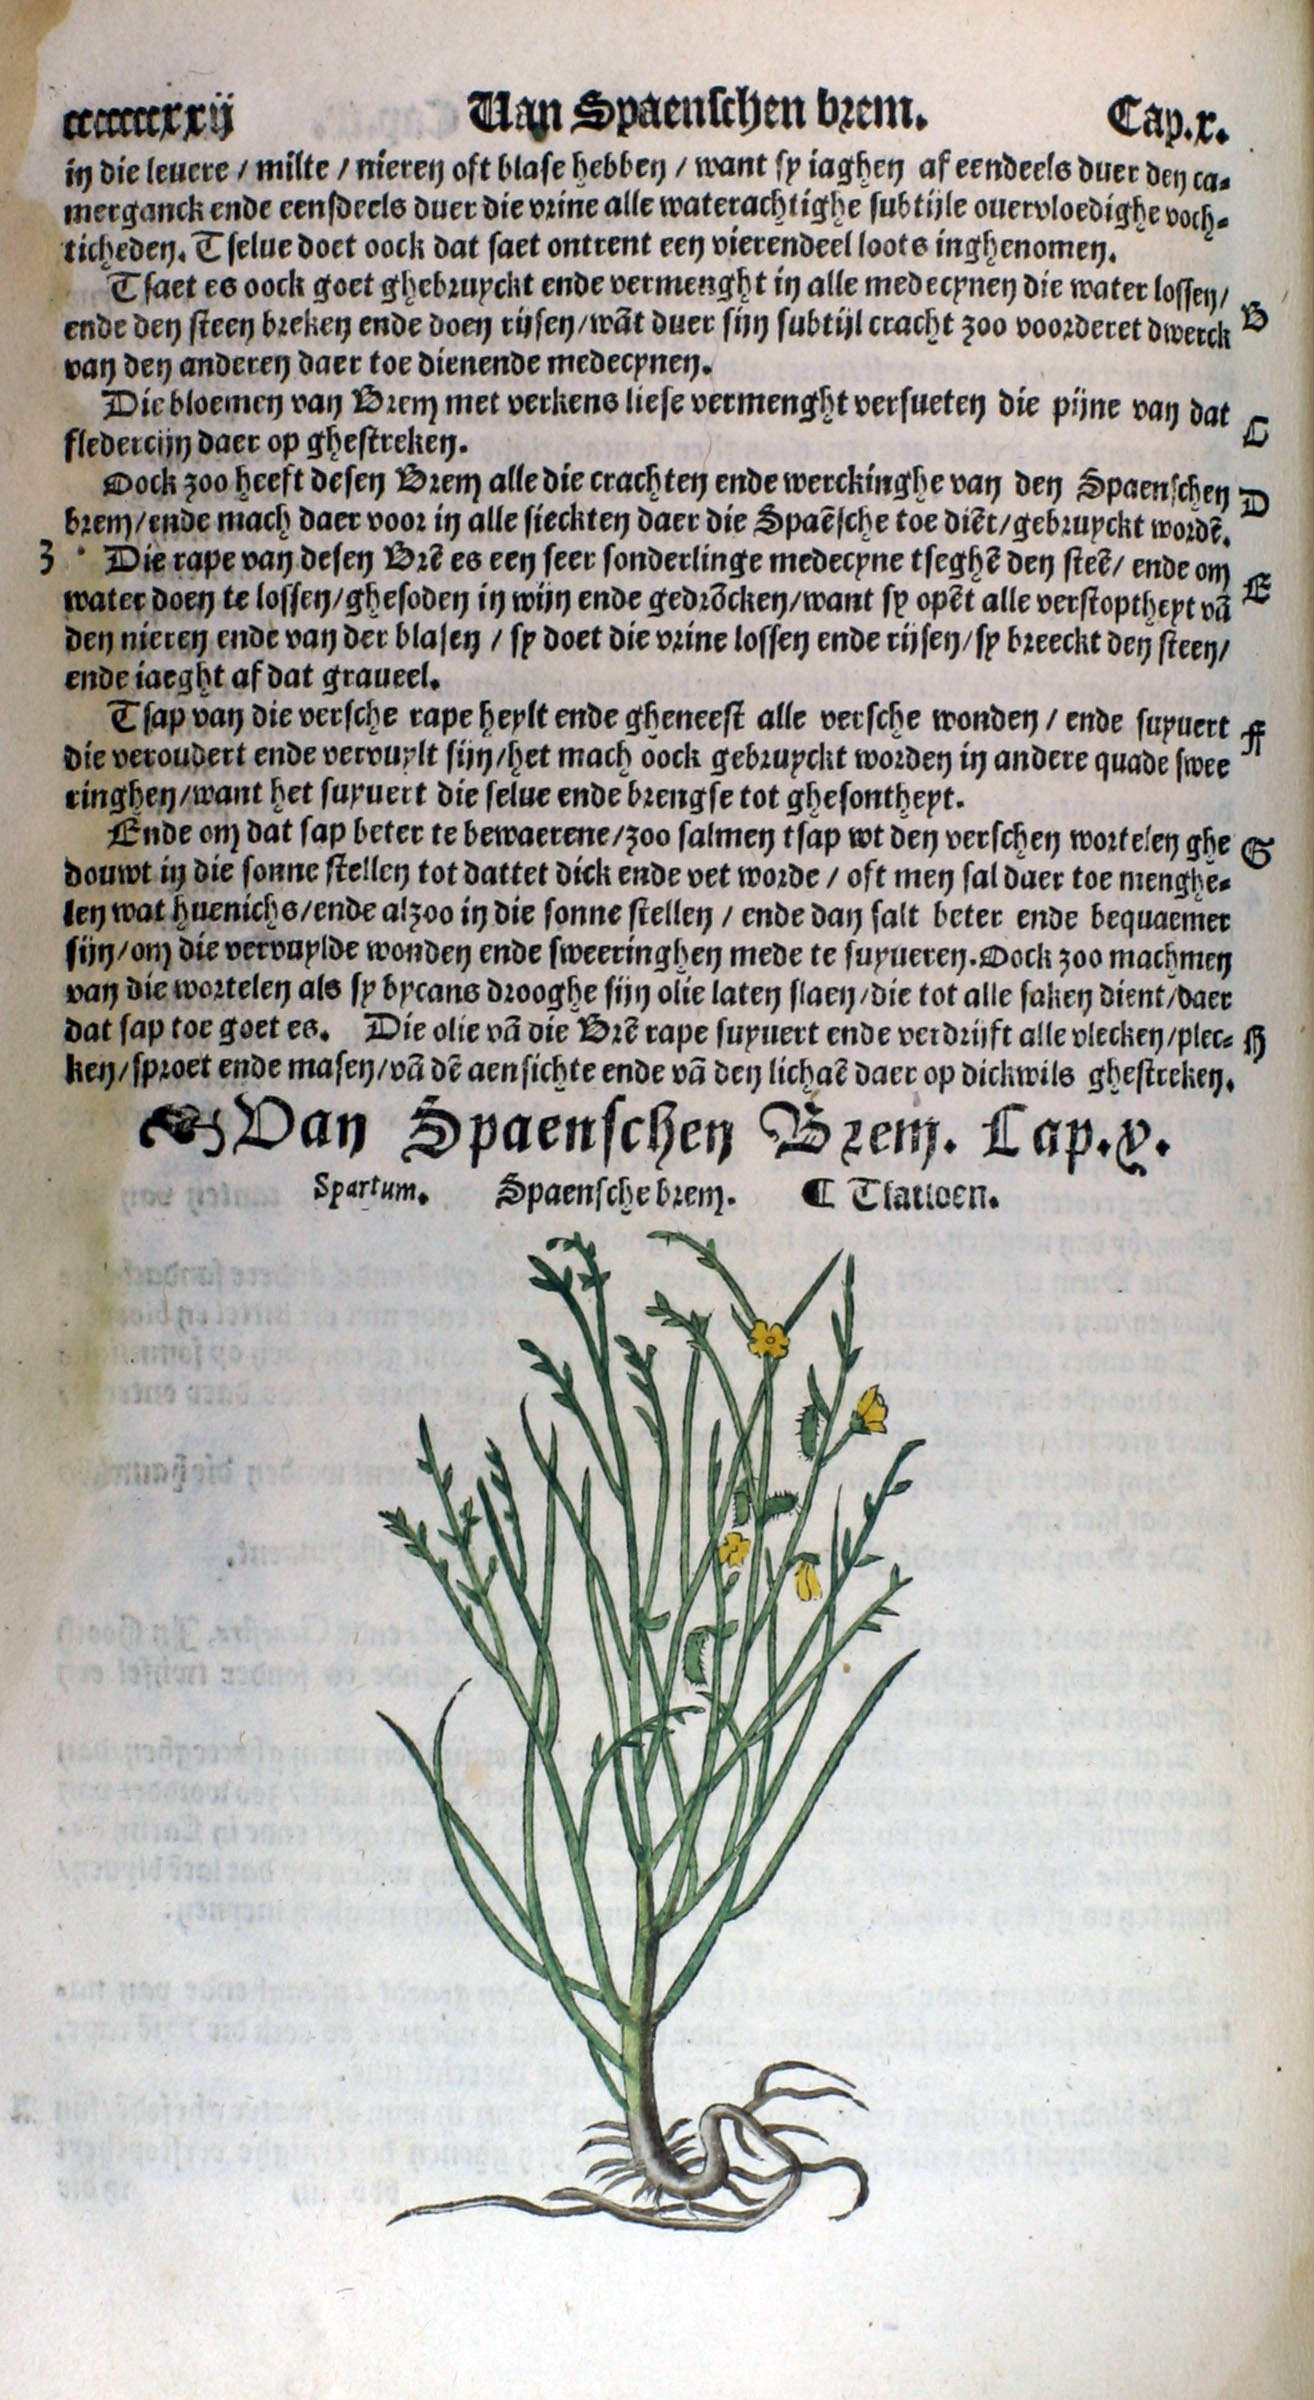 ccccccxxij Uan Spaenschen brem. Cap.x.
in die leuere / milte / nieren oft blase hebben / want sy iaghen af eendeels duer den ca-
merganck ende eensdeels duer die vrine alle waterachtighe subtijle ouervloedighe voch-
ticheden. Tselue doet oock dat saet ontrent een vierendeel loots inghenomen.
Tsaet es oock goet ghebruyckt ende vermenght in alle medecynen die water lossen/
ende den steen breken ende doen rijsen/wāt duer sijn subtijl cracht zoo voorderet dwerck B
van den anderen daer toe dienende medecynen.
Die bloemen van Brem met verkens liese vermenght versueten die pijne van dat C
fledercijn daer op ghestreken.
Oock zoo heeft desen Brem alle die crachten ende werckinghe van den Spaenschen D
brem/ende mach daer voor in alle sieckten daer die Spaēsche toe diēt/gebruyckt wordē.
3 Die rape van desen Brē es een seer sonderlinge medecyne tseghē den steē/ ende om E
water doen te lossen/ghesoden in wijn ende gedrōcken/want sy opēt alle verstoptheyt vā
den nieren ende van der blasen / sy doet die vrine lossen ende rijsen/sy breeckt den steen/
ende iaeght af dat graueel.
Tsap van die versche rape heylt ende gheneest alle versche wonden / ende suyuert F
die veroudert ende vervuylt sijn/het mach oock gebruyckt worden in andere quade swee
ringhen/want het suyuert die selue ende brengse tot ghesontheyt.
Ende om dat sap beter te bewaerene/zoo salmen tsap wt den verschen wortelen ghe G
douwt in die sonne stellen tot dattet dick ende vet worde / oft men sal daer toe menghe-
len wat huenichs/ende alzoo in die sonne stellen / ende dan salt beter ende bequaemer
sijn/om die vervuylde wonden ende sweeringhen mede te suyueren. Oock zoo machmen
van die wortelen als sy bycans drooghe sijn olie laten slaen/die tot alle saken dient/daer
dat sap toe goet es. Die olie vā die Brē rape suyuert ende verdrijft alle vlecken/plec- H
ken/sproet ende masen/vā dē aensichte ende vā den lichaē daer op dickwils ghestreken.
Van Spaenschen Brem. Cap.x.
Spartum. Spaensche brem. ¶ Tfatsoen.